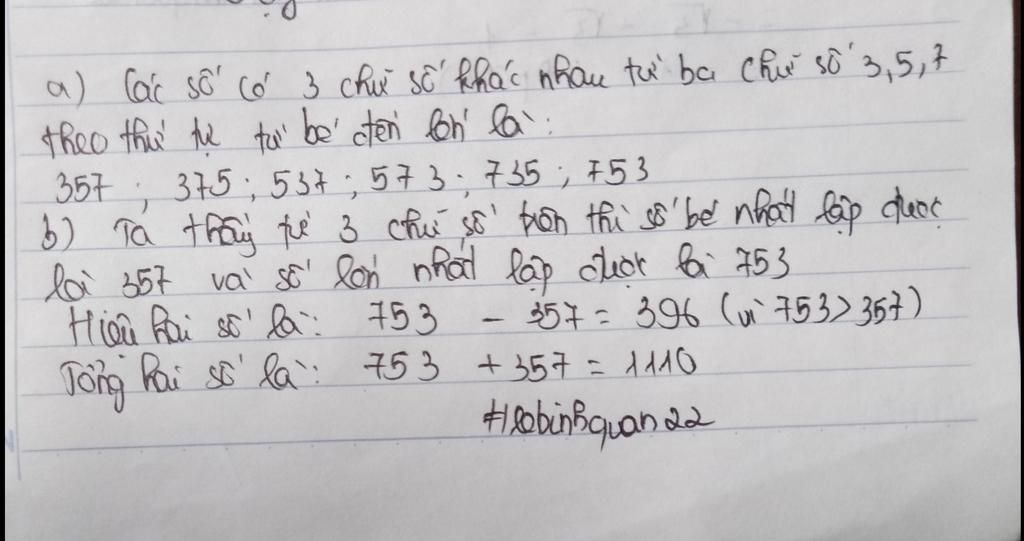 a) Các số có 3 chữ số khác nhau từ ba chữ số 3,5,7
theo thứ tự từ bé đến lớn là:
357 ; 375 ; 537 ; 573 ; 735 ; 753
b) Ta thấy từ 3 chữ số trên thì số bé nhất lập được
là 357 và số lớn nhất lập được là 753
Hiệu hai số là: 753 - 357 = 396 (vì 753 > 357)
Tổng hai số là: 753 + 357 = 1110